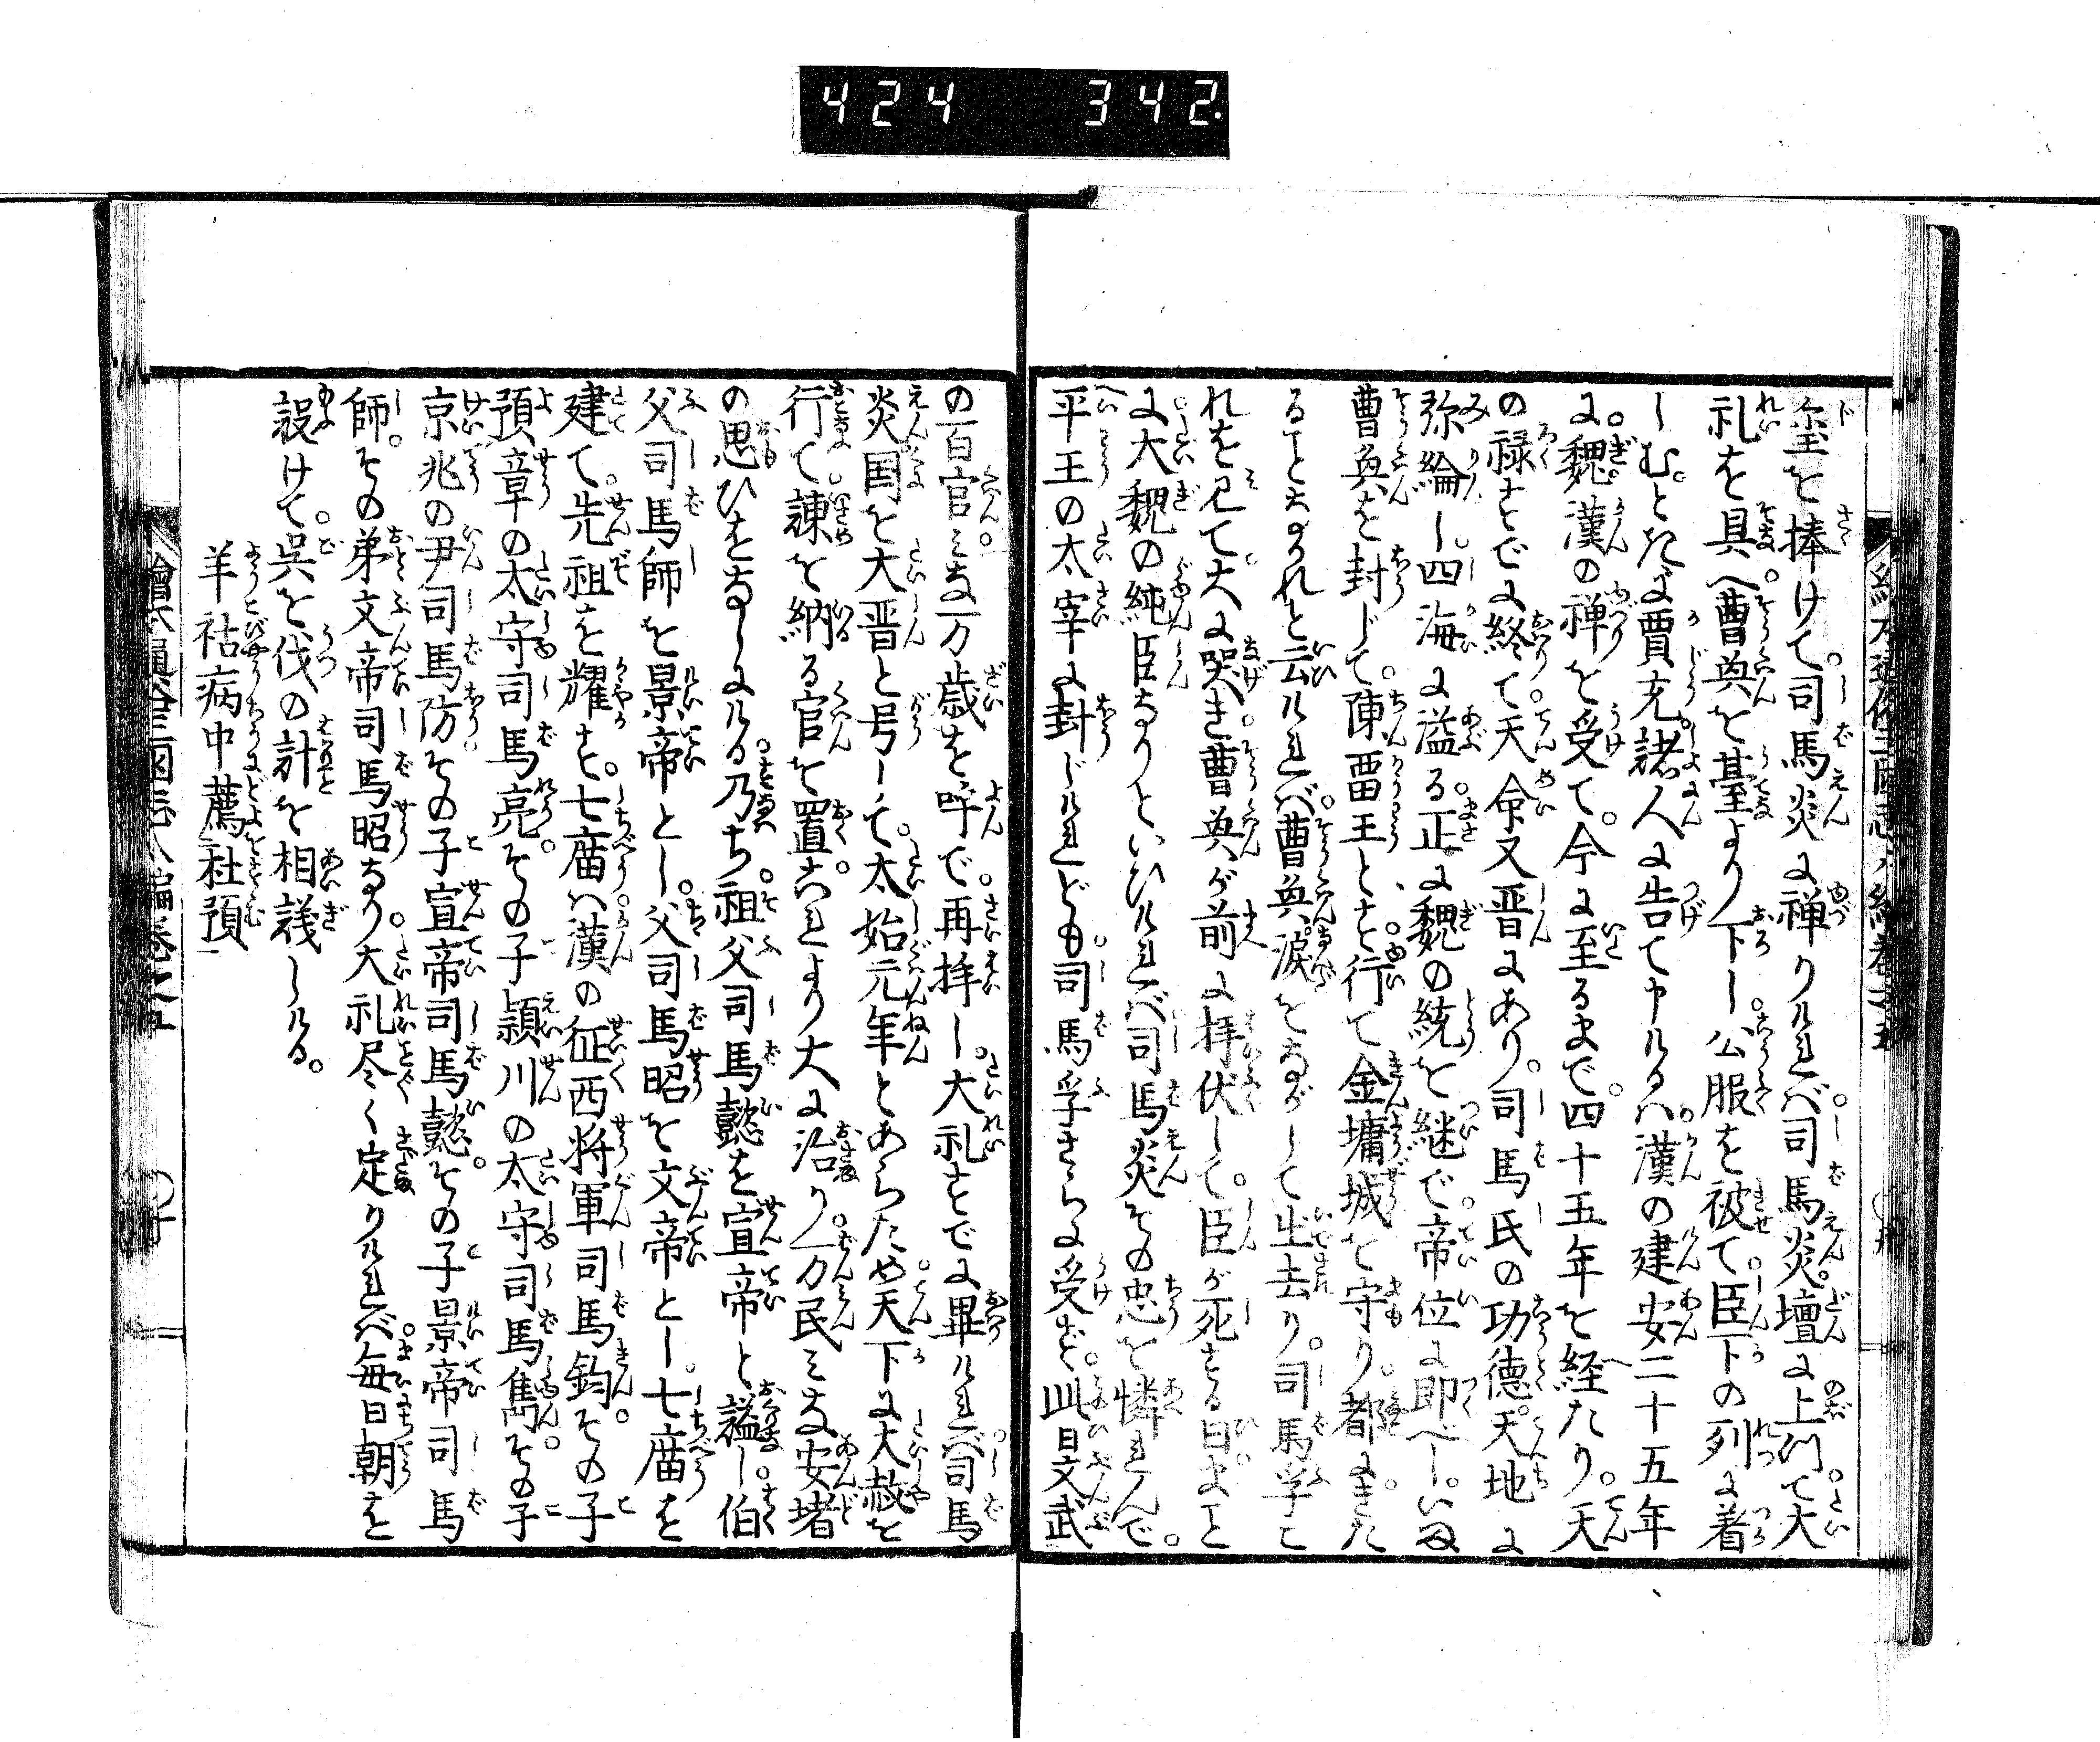 424 342.
璽を捧けて司馬炎に禅りけれバ司馬炎壇に上りて大
礼を具へ曹奐を臺より下し公服を被て臣下の列に着
しむときに賈充諸人に告て申けるハ漢の建安二十五年
に魏漢の禅を受て今に至るまで四十五年を経たり天
の禄すでに終て天命又晋にあり司馬氏の功徳天地に
弥綸し四海に溢る正に魏の統を継で帝位に即べしいま
曹奐を封じて陳畱王とす行て金墉城を守り都にきた
ることなかれと云けれバ曹奐涙をながして出去り司馬孚こ
れを見て大に哭き曹奐が前に拝伏して臣が死する日まこと
に大魏の純臣なりといひけれバ司馬炎その忠を憐れんで
平王の太宰に封じけれども司馬孚さらに受ず此日文武
の百官みな万歳を呼で再拝し大礼すでに畢けれバ司馬
炎国を大晋と号して太始元年とあらため天下に大赦を
行て諌を納る官を置これより大に治り万民みな安堵
の思ひをなしにける乃ち祖父司馬懿を宣帝と謚し伯
父司馬師を景帝とし父司馬昭を文帝とし七廟を
建て先祖を耀す七廟ハ漢の征西将軍司馬鈞その子
預章の太守司馬亮その子頴川の太守司馬雋その子
京兆の尹司馬防その子宣帝司馬懿その子景帝司馬
師その弟文帝司馬昭なり大礼尽く定りけれバ毎日朝を
設けて呉を伐の計を相議しける
羊祜病中薦杜預